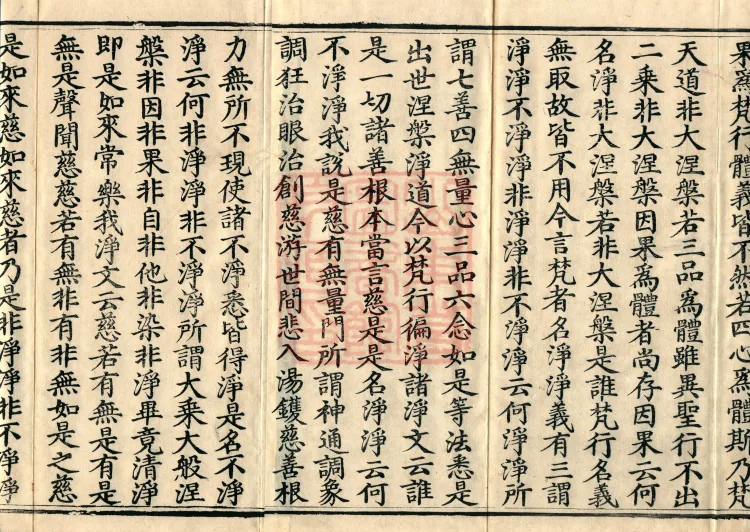 果為梵行體義皆不然若四心為體斯乃梵
天道非大涅槃若三品為體雖異聖行不出
二乘非大涅槃因果為體者尚存因果云何
名淨非大涅槃若非大涅槃是誰梵行名義
無取故皆不用今言梵者名淨淨義有三謂
淨淨不淨淨非淨淨非不淨淨云何淨淨所
謂七善四無量心三品六念如是等法悉是
出世涅槃淨道今以梵行徧淨諸淨文云誰
是一切諸善根本當言慈是是名淨淨云何
不淨淨我說是慈有無量門所謂神通調象
調狂治眼治創慈游世間悲入湯鑊慈善根
力無所不現使諸不淨悉皆得淨是名不淨
淨云何非淨淨非不淨淨所謂大乘大般涅
槃非因非果非自非他非染非淨畢竟清淨
即是如來常樂我淨文云慈若有無是有是
無是聲聞慈慈若有無非有非無如是之慈
是如來慈如來慈者乃是非淨淨非不淨淨